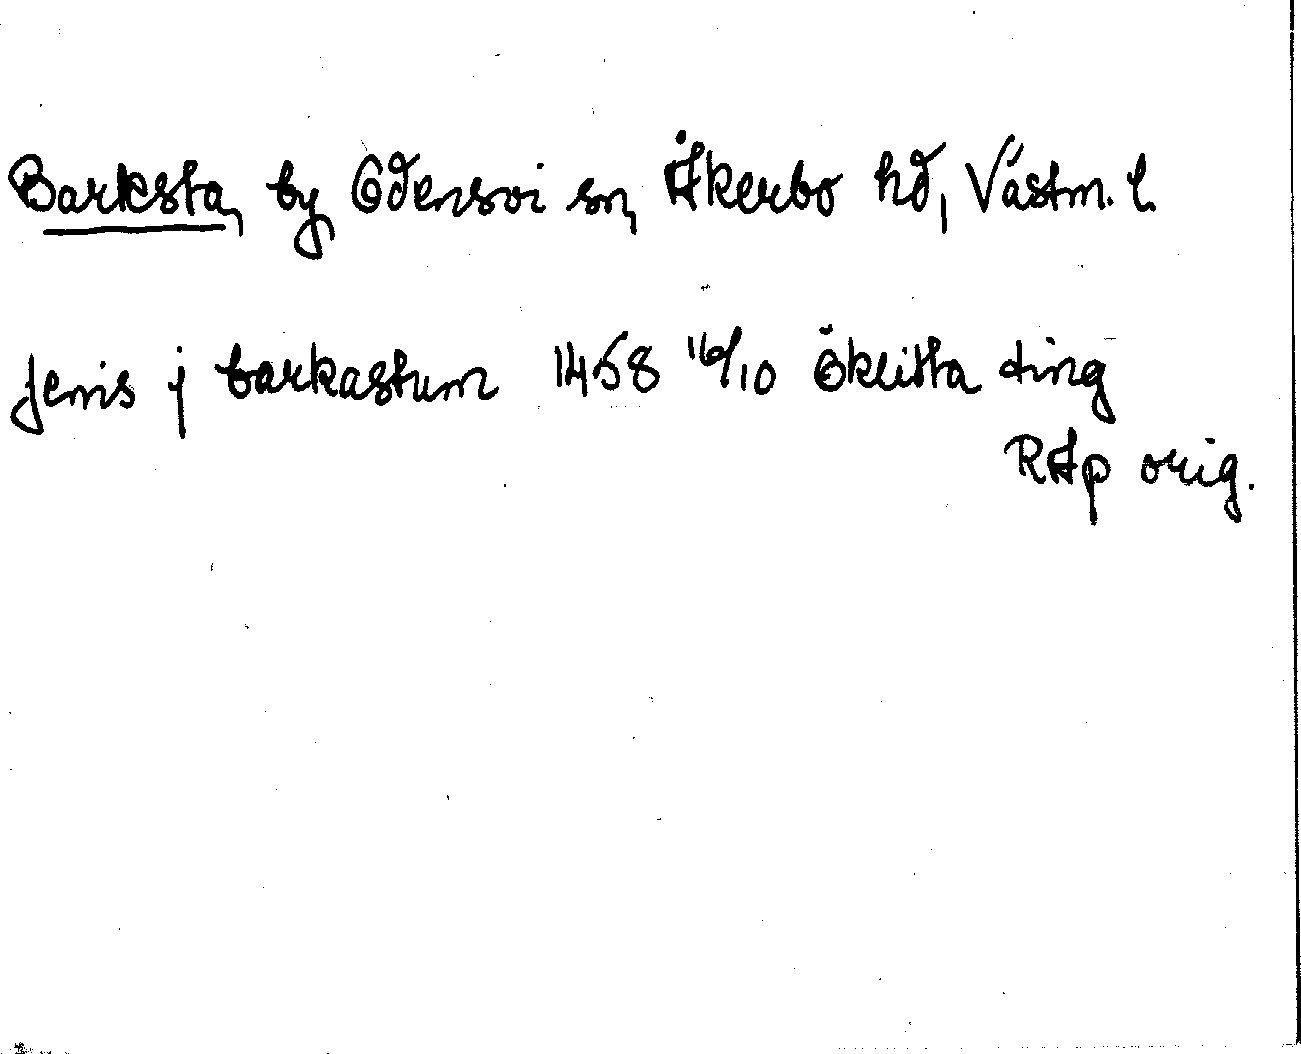 Barksta, by Odensvi sn, Åkerbo hd, Västm. l.
Jenis j barkastum 1458 16/10 Öklista ting
RAp orig.